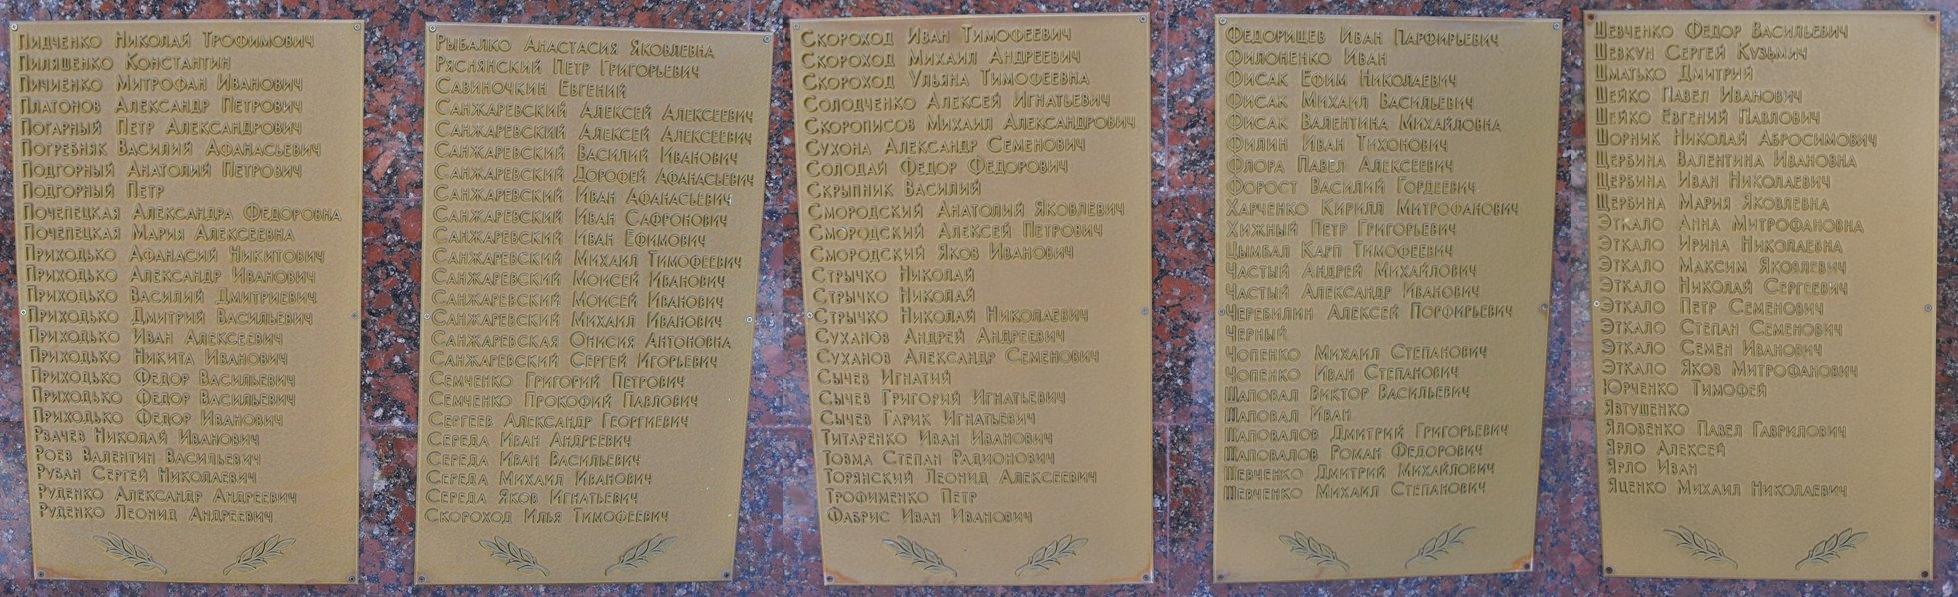 Пидченко Николай Трофимович
Пиляшенко Константин
Пичиенко Митрофан Иванович
Платонов Александр Петрович
Погарный Петр Александрович
Погребняк Василий Афанасьевич
Подгорный Анатолий Петрович
Подгорный Петр
Почепецкая Александра Федоровна
Почепецкая Мария Алексеевна
Приходько Афанасий Никитович
Приходько Александр Иванович
Приходько Василий Дмитриевич
Приходько Дмитрий Васильевич
Приходько Иван Алексеевич
Приходько Никита Иванович
Приходько Федор Васильевич
Приходько Федор Васильевич
Приходько Федор Иванович
Рвачев Николай Иванович
Роев Валентин Васильевич
Рубан Сергей Николаевич
Руденко Александр Андреевич
Руденко Леонид Андреевич
Рыбалко Анастасия Яковлевна
Ряснянский Петр Григорьевич
Савиночкин Евгений
Санжаревский Алексей Алексеевич
Санжаревский Алексей Алексеевич
Санжаревский Василий Иванович
Санжаревский Дорофей Афанасьевич
Санжаревский Иван Афанасьевич
Санжаревский Иван Сафронович
Санжаревский Иван Ефимович
Санжаревский Михаил Тимофеевич
Санжаревский Моисей Иванович
Санжаревский Моисей Иванович
Санжаревский Михаил Иванович
Санжаревская Онисия Антоновна
Санжаревский Сергей Игорьевич
Семченко Григорий Петрович
Семченко Прокофий Павлович
Сергеев Александр Георгиевич
Середа Иван Андреевич
Середа Иван Васильевич
Середа Михаил Иванович
Середа Яков Игнатьевич
Скороход Илья Тимофеевич
Скороход Иван Тимофеевич
Скороход Михаил Андреевич
Скороход Ульяна Тимофеевна
Солодченко Алексей Игнатьевич
Скорописов Михаил Александрович
Сухона Александр Семенович
Солодай Федор Федорович
Скрыпник Василий
Смородский Анатолий Яковлевич
Смородский Алексей Петрович
Смородский Яков Иванович
Стрычко Николай
Стрычко Николай
Стрычко Николай Николаевич
Суханов Андрей Андреевич
Суханов Александр Семенович
Сычев Игнатий
Сычев Григорий Игнатьевич
Сычев Гарик Игнатьевич
Титаренко Иван Иванович
Товма Степан Радионович
Торянский Леонид Алексеевич
Трофименко Петр
Фабрис Иван Иванович
Федорищев Иван Парфирьевич
Филоненко Иван
Фисак Ефим Николаевич
Фисак Михаил Васильевич
Фисак Валентина Михайловна
Филин Иван Тихонович
Флора Павел Алексеевич
Форост Василий Гордеевич
Харченко Кирилл Митрофанович
Хижный Петр Григорьевич
Цымбал Карп Тимофеевич
Частый Андрей Михайлович
Частый Александр Иванович
Черевилин Алексей Порфирьевич
Черный
Чопенко Михаил Степанович
Чопенко Иван Степанович
Шаповал Виктор Васильевич
Шаповал Иван
Шаповалов Дмитрий Григорьевич
Шаповалов Роман Федорович
Шевченко Дмитрий Михайлович
Шевченко Михаил Степанович
Шевченко Федор Васильевич
Шевкун Сергей Кузьмич
Шматько Дмитрий
Шейко Павел Иванович
Шейко Евгений Павлович
Шорник Николай Абросимович
Щербина Валентина Ивановна
Щербина Иван Николаевич
Щербина Мария Яковлевна
Эткало Анна Митрофановна
Эткало Ирина Николаевна
Эткало Максим Яковлевич
Эткало Николай Сергеевич
Эткало Петр Семенович
Эткало Степан Семенович
Эткало Семен Иванович
Эткало Яков Митрофанович
Юрченко Тимофей
Явтушенко
Яловенко Павел Гаврилович
Ярло Алексей
Ярло Иван
Яценко Михаил Николаевич